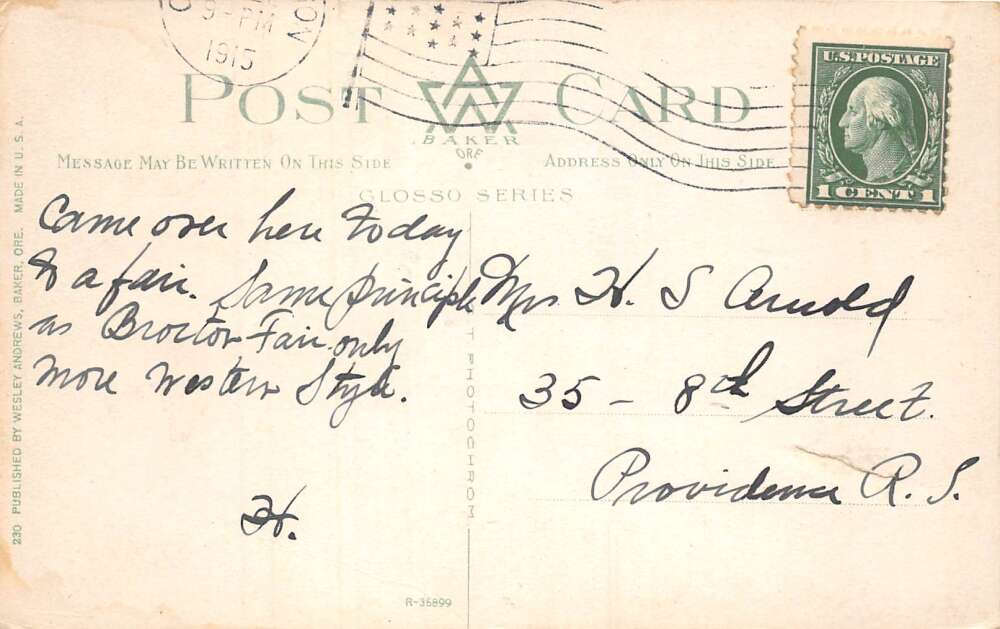 9-PM
1915
U.S. POSTAGE
1 CENT 1
POST CARD
BAKER
ORE
MESSAGE MAY BE WRITTEN ON THIS SIDE
ADDRESS ONLY ON THIS SIDE
GLOSSO SERIES
Came over here today
to a fair. Same principle
as Brocton Fair only
more Western Style.
H.
Mrs H. S Arnold
35 - 8th Street.
Providence R. I.
230 PUBLISHED BY WESLEY ANDREWS, BAKER, ORE. MADE IN U. S. A.
PHOTOCHROM
R-36899